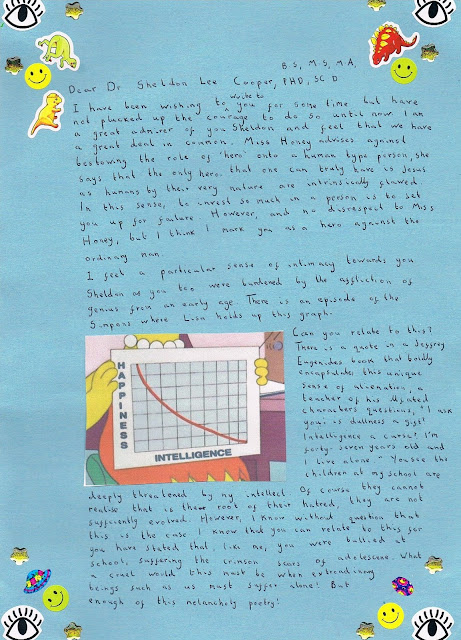 B S, M S, M A,
Dear Dr Sheldon Lee Cooper, PHD, SC D
I have been wishing to write to you for some time but have
not plucked up the courage to do so until now. I am
a great admirer of you Sheldon and feel that we have
a great deal in common. Miss Honey advises against
bestowing the role of 'hero' onto a human type person, she
says that the only hero that one can truly have is Jesus
as humans by their very nature are intrinsically flawed.
In this sense, to invest so much in a person is to set
you up for failure. However, and no disrespect to Miss
Honey, but I think I mark you as a hero against the
ordinary man.
I feel a particular sense of intimacy towards you
Sheldon as you too were burdened by the affliction of
genius from an early age. There is an episode of the
Simpons where Lisa holds up this graph.
HAPPINESS
INTELLIGENCE
Can you relate to this?
There is a quote in a Jeffrey
Eugenides book that boldly
encapsulates this unique
sense of alienation, a
teacher of his
characters questions, "I ask
you: is dullness a gift?
Intelligence a curse? I'm
forty-seven years old and
I live alone." You see the
children at my school are
deeply threatened by my intellect. Of course they cannot
realise that is the root of their hatred, they are not
sufficently evolved. However, I know without question that
this is the case. I know that you can relate to this for
you have stated that, like me, you were bullied at
school, suffering the crimson scars of adolescene. What
a cruel world this must be when extraordinary
beings such as us must suffer alone! But
enough of this melancholy poetry!